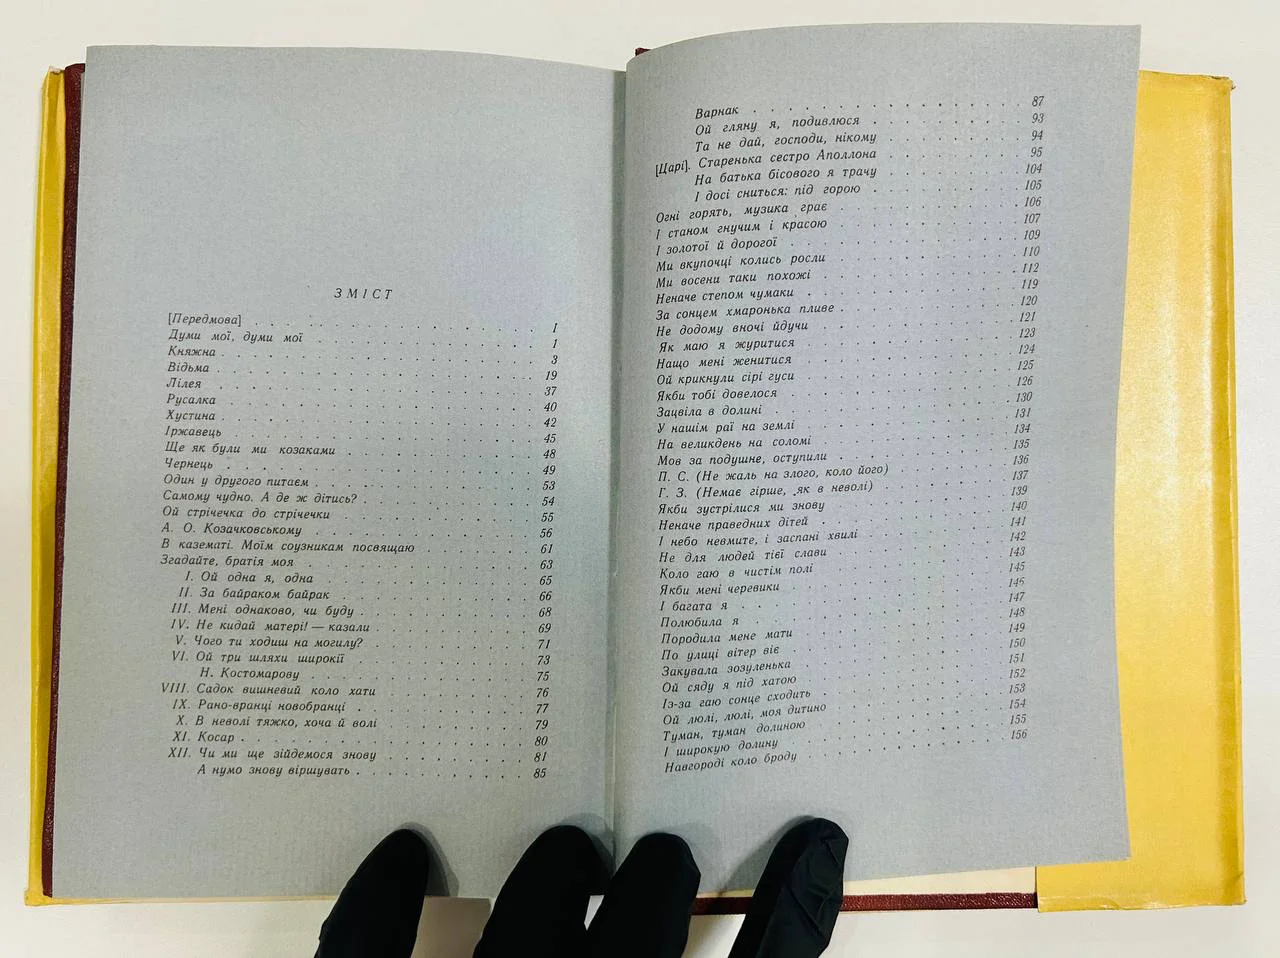 ЗМІСТ
[Передмова] I
Думи мої, думи мої 1
Княжна 3
Відьма 19
Лілея 37
Русалка 40
Хустина 42
Іржавець 45
Ще як були ми козаками 48
Чернець 49
Один у другого питаєм 53
Самому чудно. А де ж дітись? 54
Ой стрічечка до стрічечки 55
А. О. Козачковському 56
В казематі. Моїм соузникам посвящаю 61
Згадайте, братія моя 63
I. Ой одна я, одна 65
II. За байраком байрак 66
III. Мені однаково, чи буду 68
IV. Не кидай матері! — казали 69
V. Чого ти ходиш на могилу? 71
VI. Ой три шляхи широкії 73
Н. Костомарову 75
VIII. Садок вишневий коло хати 76
IX. Рано-вранці новобранці 77
X. В неволі тяжко, хоча й волі 79
XI. Косар 80
XII. Чи ми ще зійдемося знову 81
А нумо знову віршувать 85
Варнак 87
Ой гляну я, подивлюся 93
Та не дай, господи, нікому 94
[Царі]. Старенька сестро Аполлона 95
На батька бісового я трачу 104
І досі сниться: під горою 105
Огні горять, музика грає 106
І станом гнучим і красою 107
І золотої й дорогої 109
Ми вкупочці колись росли 110
Ми восени таки похожі 112
Неначе степом чумаки 119
За сонцем хмаронька пливе 120
Не додому вночі йдучи 121
Як маю я журитися 123
Нащо мені женитися 124
Ой крикнули сірі гуси 125
Якби тобі довелося 126
Зацвіла в долині 130
У нашім раї на землі 131
На великдень на соломі 134
Мов за подушне, оступили 135
П. С. (Не жаль на злого, коло його) 136
Г. З. (Немає гірше, як в неволі) 137
Якби зустрілися ми знову 139
Неначе праведних дітей 140
І небо невмите, і заспані хвилі 141
Не для людей тієї слави 142
Коло гаю в чистім полі 143
Якби мені черевики 145
І багата я 146
Полюбила я 147
Породила мене мати 148
По улиці вітер віє 149
Закувала зозуленька 150
Ой сяду я під хатою 151
Із-за гаю сонце сходить 152
Ой люлі, люлі, моя дитино 153
Туман, туман долиною 154
І широкую долину 155
Навгороді коло броду 156